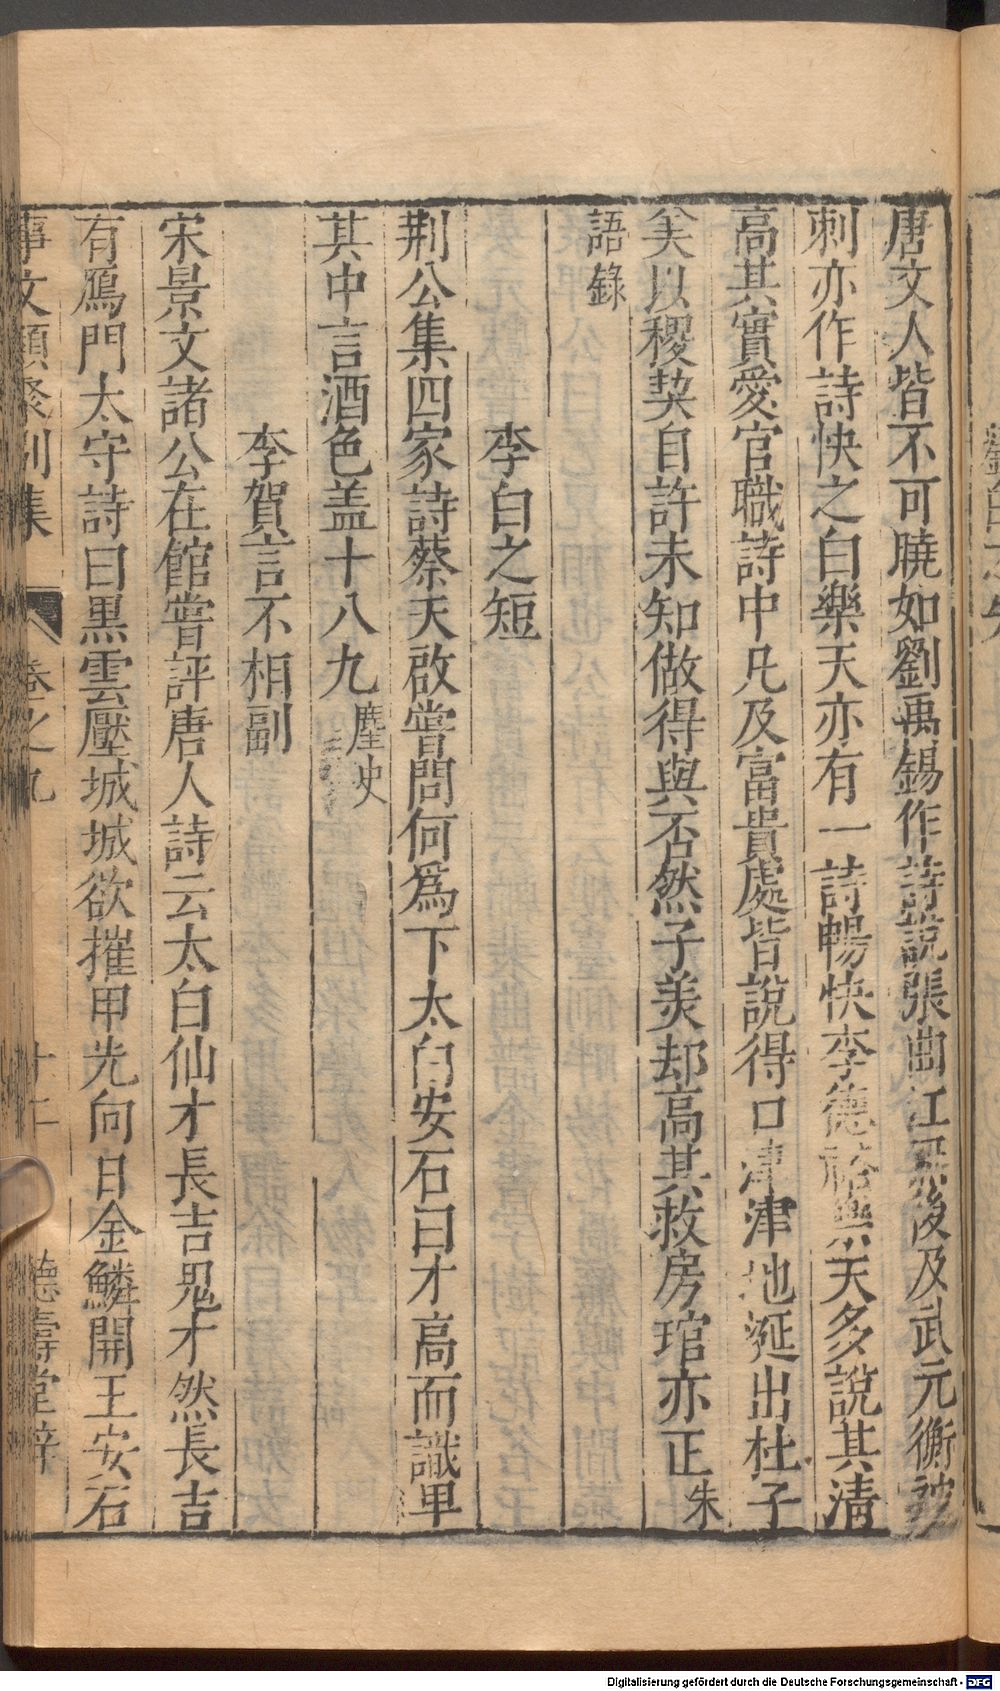 唐文人皆不可曉如劉禹錫作詩說張曲江無後及武元衡被
刺亦作詩快之白樂天亦有一詩暢快李德裕樂天多說其清
高其實愛官職詩中凡及富貴處皆說得口津津地涎出杜子
美以稷契自許未知做得與否然子美却高其救房琯亦正朱
語錄
李白之短
荆公集四家詩蔡天啟嘗問何爲下太白安石曰才高而識卑
其中言酒色盖十八九麈史
李賀言不相副
宋景文諸公在館嘗評唐人詩云太白仙才長吉鬼才然長吉
有鴈門太守詩曰黑雲壓城城欲摧甲光向日金鱗開王安石
事文類聚別集 卷之九 十二 德壽堂梓
Digitalisierung gefördert durch die Deutsche Forschungsgemeinschaft - DFG